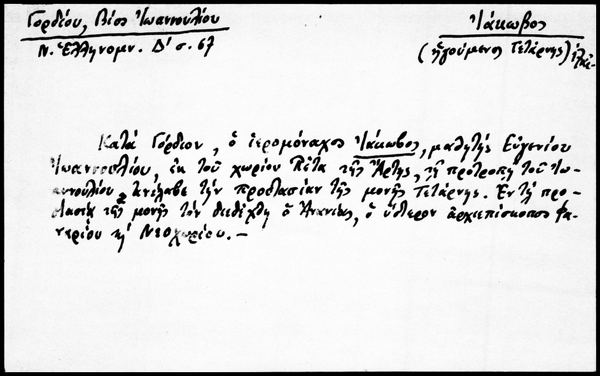 Γορδίου, Βίος Ἰωαννουλίου
Ν. Ἑλληνομν. Δ' σ. 67
Ἰάκωβος
(ἡγούμενος Τετάρνης)
Κατά Γόρδιον, ὁ ἱερομόναχος Ἰάκωβος, μαθητής Εὐγενίου
Ἰωαννουλίου, ἐκ τοῦ χωρίου Πέτα τῆς Ἄρτης, τῇ προτροπῇ τοῦ Ἰω-
αννουλίου ἀνέλαβε τήν προστασίαν τῆς μονῆς Τετάρνης. Ἐν τῇ προ-
στασίᾳ τῆς μονῆς τόν διεδέχθη ὁ Ἀνανίας, ὁ ὕστερον ἀρχιεπίσκοπος Φα-
ναρίου κ' Νεοχωρίου.—